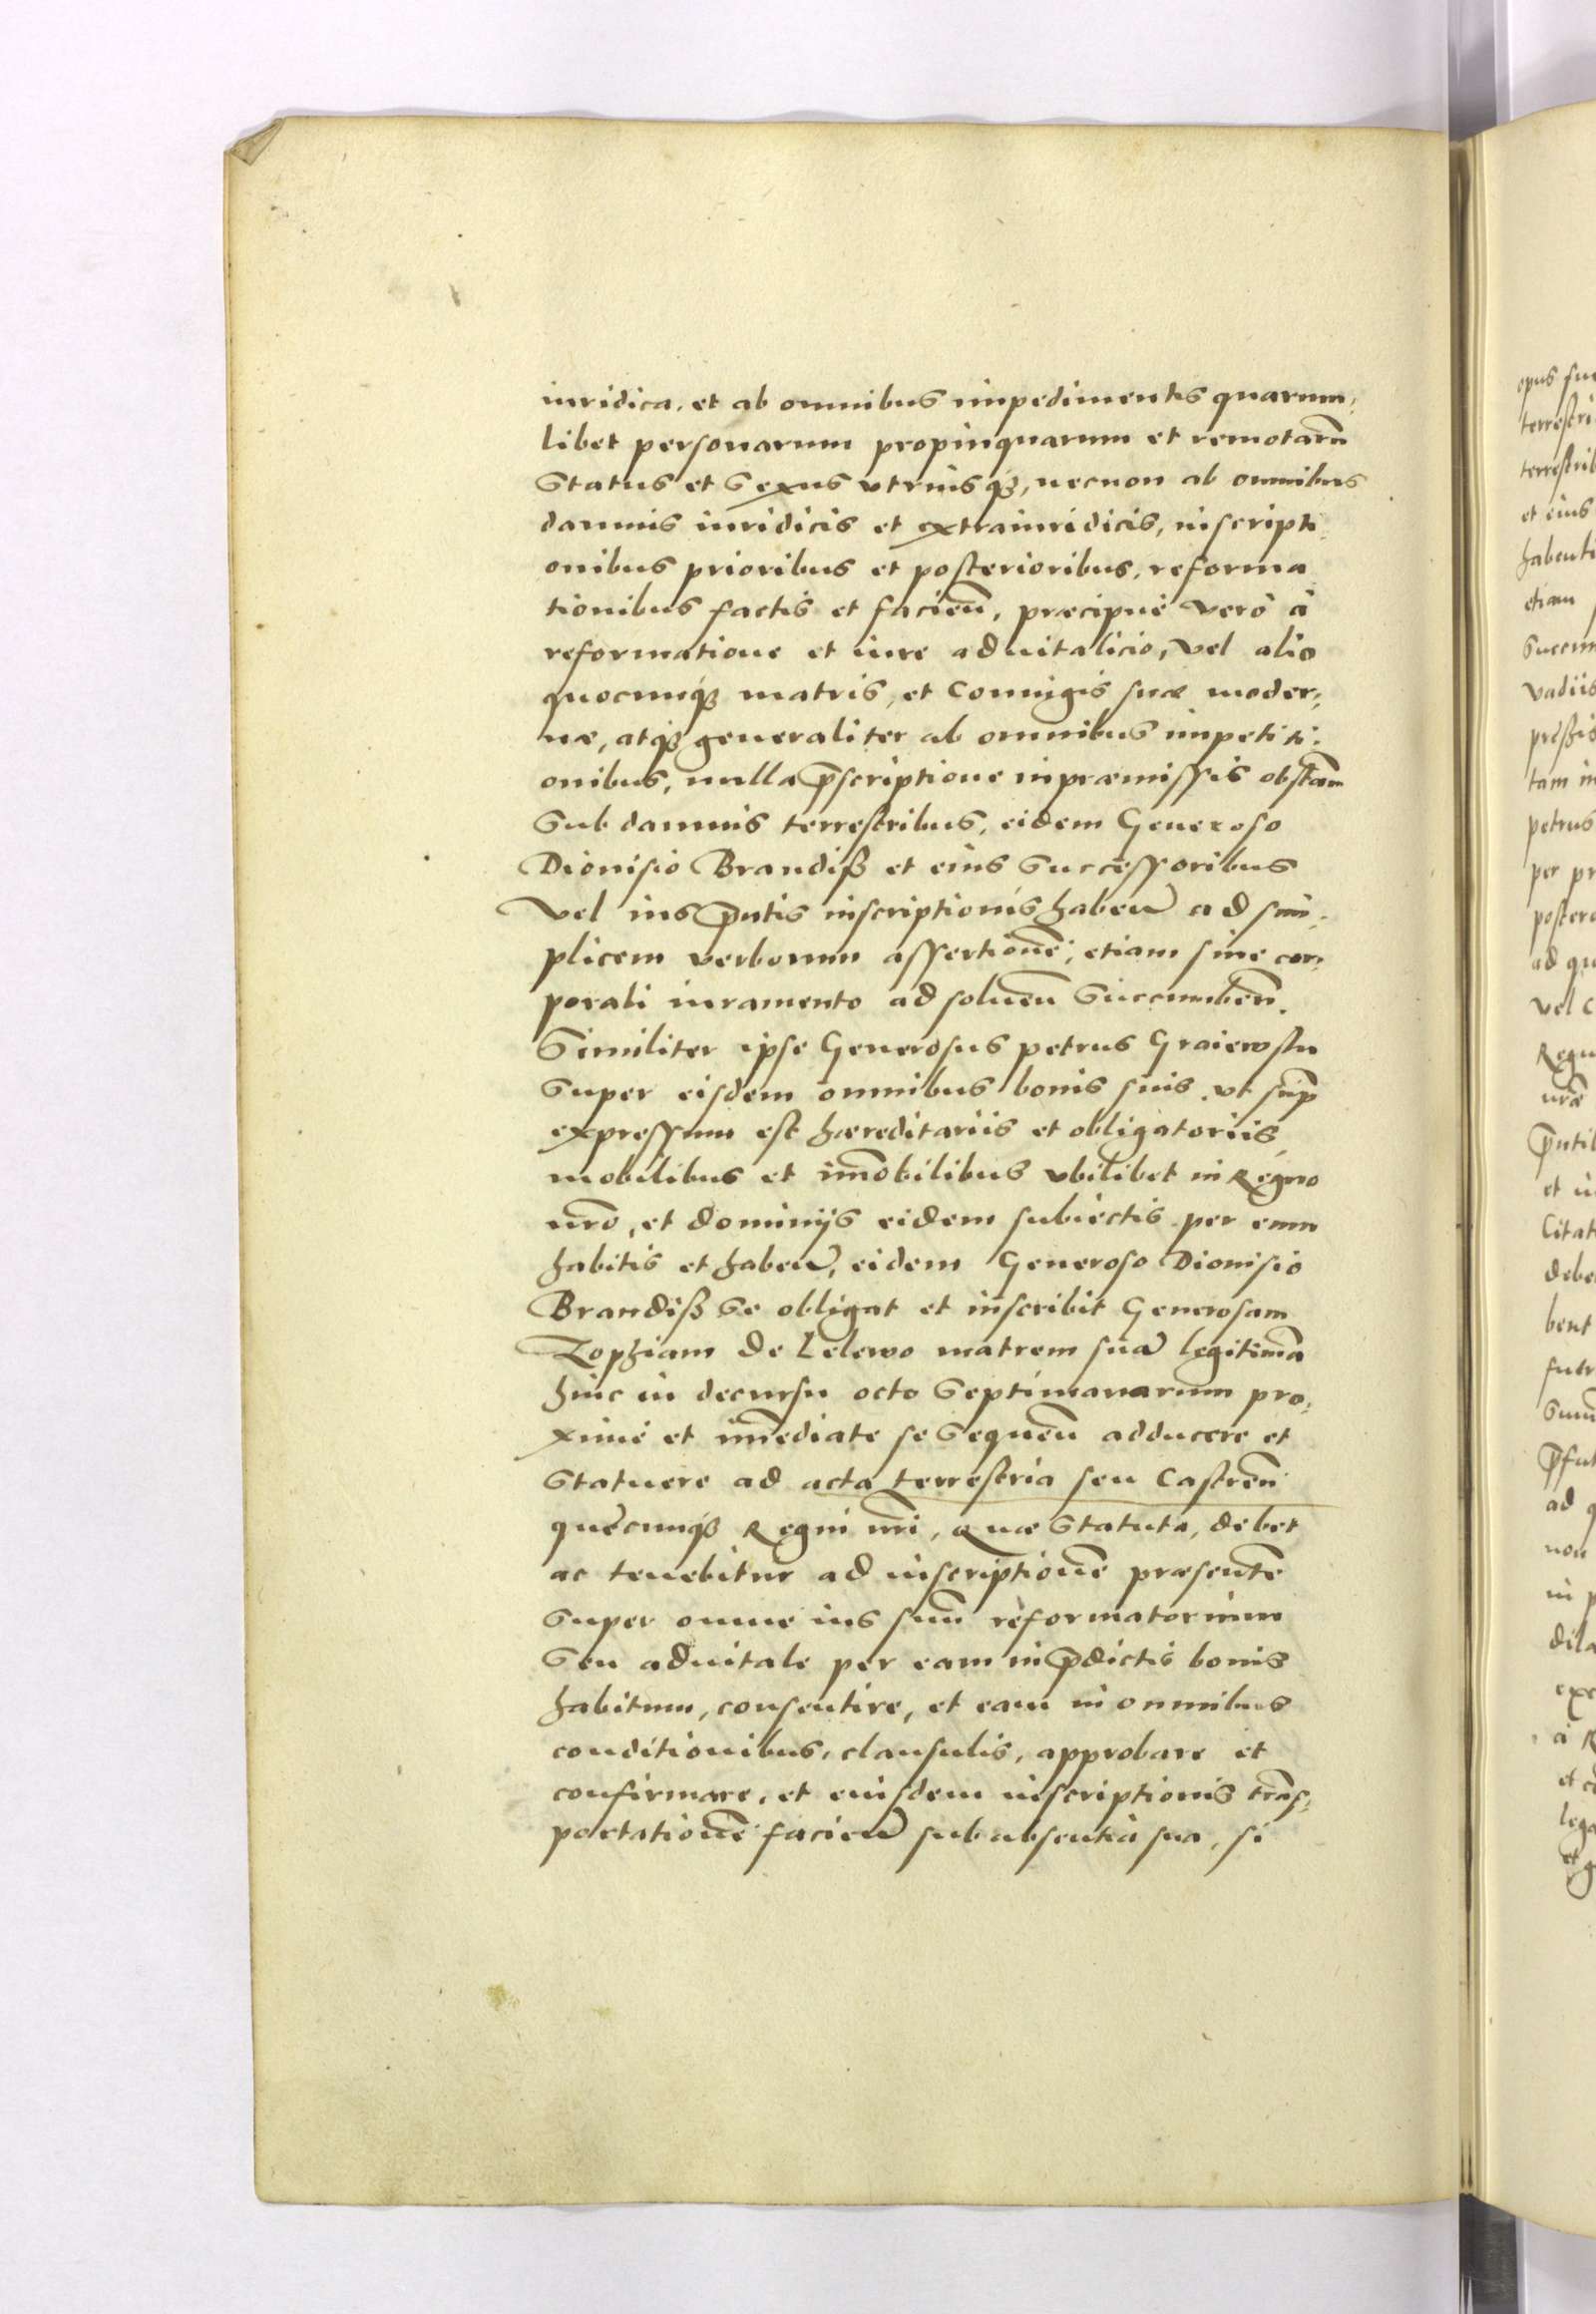 iuridica, et ab omnibus impedimentis quarum,
libet personarum propinquarum et remotarũ
Status et Sexus vtriusqȝ, necnon ab omnibus
damnis iuridicis et extraiuridicis, inscripti,
onibus prioribus et posterioribus, reforma
tionibus factis et facieñ, præcipuè verò à
reformatione et iure aduitalicio, vel alio
quocunqȝ matris, et Coniugis suæ moder,
næ, atqȝ generaliter ab omnibus impetiti,
onibus, nulla p̃scriptione in præmissis obstañ
Sub damnis terrestribus, eidem Generoso
Dionisio Brandiß et eius Successoribus
Vel ius p̃ntis inscriptionis habeñ ad sim,
plicem verborum assertionẽ, etiam sine cor,
porali iuramento ad solueñ Succumbeñ.
Similiter ipse Generosus petrus Graiewsky
Super eisdem omnibus bonis suis, vt sup̃
expressum est hæreditariis et obligatoriis,
mobilibus et im̃obilibus vbilibet in Regno
nr̃o, et dominijs eidem subiectis per eum
habitis et habeñ, eidem Generoso Dionisio
Brandiß Se obligat et inscribit Generosam
Zophiam de Lelewo matrem suã legitimã
hinc in decursu octo Septimanarum pro,
ximè et im̃ediate se Sequeñ adducere et
Statuere ad acta terrestria seu Castreñ
quæcunqȝ Regni nr̃i, Quæ Statuta, debet
ac tenebitur ad inscriptionẽ præsentẽ
Super omne ius suũ reformatorium
Seu aduitale per eam in p̃dictis bonis
habitum, consentire, et eam in omnibus
conditionibus, clausulis, approbare et
confirmare, et eiusdem inscriptionis trãs,
portationẽ facieñ sub absentia sua, si
opus
terrestri
et eius
habenti
etiam
vadiis
tam in
petrus
per pr
ad qu
vel c
et
debe
bent
ad q
non
in p
à R
et